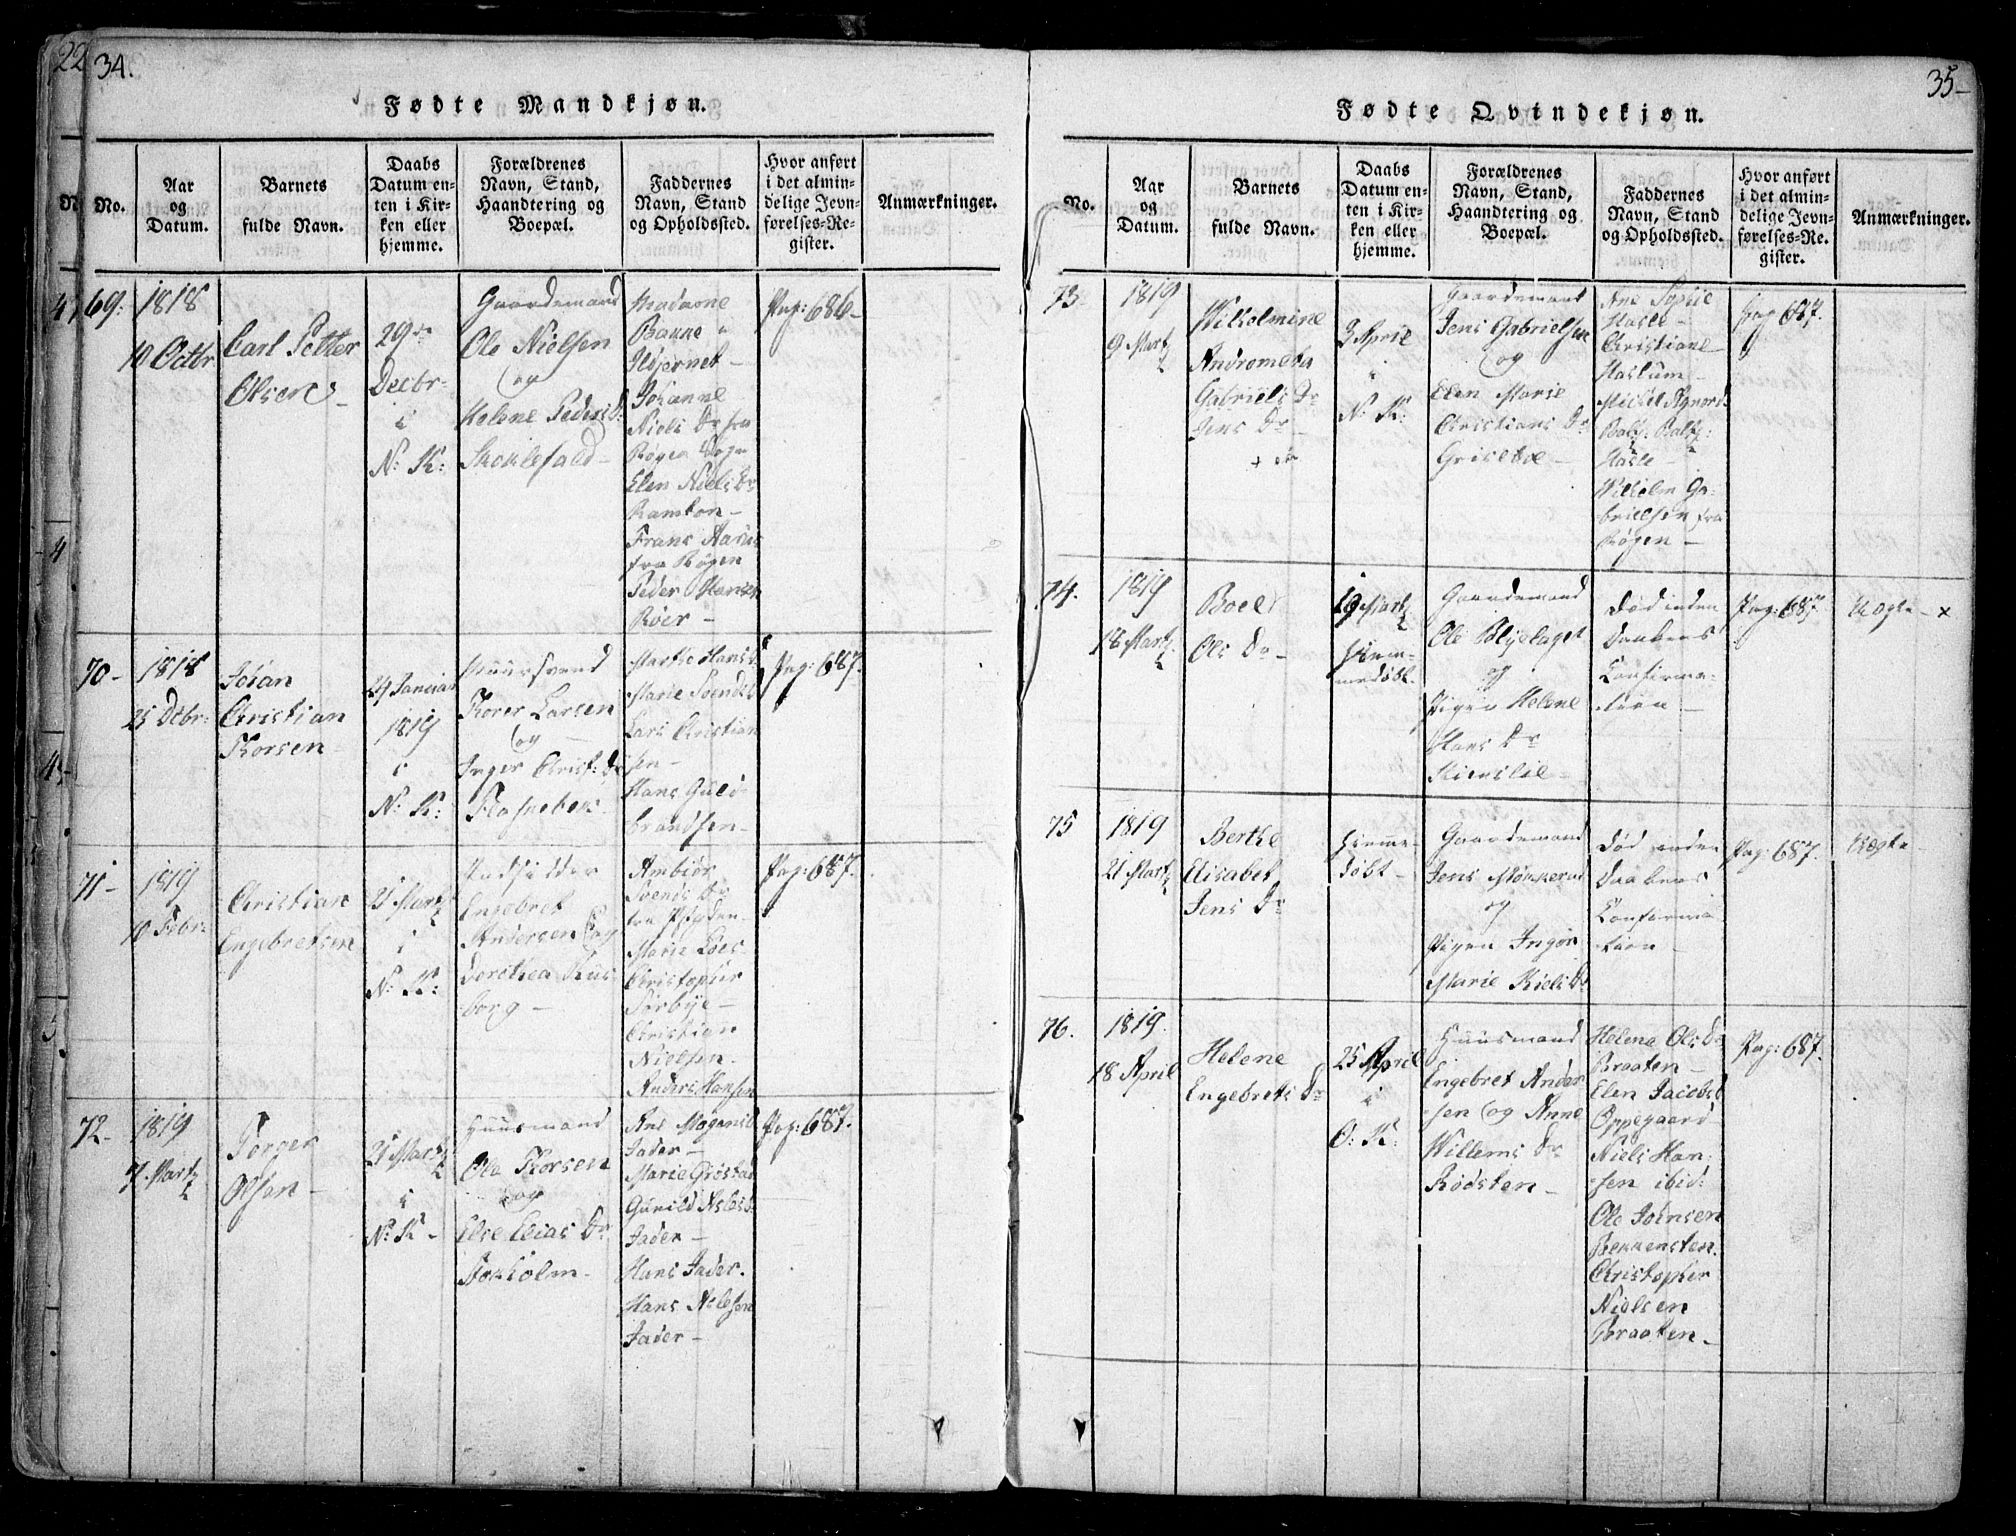 22
34.
Fødte Mandkjøn.
No.
Aar
og
Datum.
Barnets
fulde Navn.
Daabs
Datum en-
ten i Kir-
ken eller
hjemme.
Forældrenes
Navn, Stand,
Haandtering og
Boepæl.
Faddernes
Navn, Stand
og Opholdssted.
Hvor anført
i det almin-
delige Jevn-
førelses-Re-
gister.
Anmærkninger.
69.
1818
10 Octbr
Carl Petter
Olsen
29de
Decbr
i
N: K:
Gaardemand
Ole Nielsen
og
Helene Peders Dr
Skoklefald
Madame
Ildjernet
Johanne
Niels Dr fra
Elen Niels Dr
Ramton
Frans
fra Røgen
Peder Hansen
Røer
Pag: 686
70
1818
25 Decbr
Johan
Christian
Thorsen
24 Januar
1819
i
N: K:
Thorer Larsen
og
Inger Christ: Dr
Flaskebek
Marthe Hans Dr
Marie Svends Dr
Lars Christian
sen
Hans Guld
brandsen
Pag: 687.
71
1819
10 Febr:
Christian
Engebretsen
21 Martz
i
N: K:
Indsidder
Engebret
Andersen og
Dorthea Hus
borg
Ambiør
Svends Dr
Marie Løes
Christopher
Sørbye
Christian
Nielsen
Anders Hansen
Pag: 687.
72
1819
7 Martz
Torger
Olsen
21 Martz
i
N: K
Huusmand
Ole Thorsen
og
Else Elias Dr
Stokholm
Ane Mogens Dr
Jader
Marie Grøstad
Gunild Niels Dr
Jader
Hans Jader.
Hans Nielsen
Jader
Pag: 687.
35
Fødte Qvindekjøn.
No.
Aar
og
Datum.
Barnets
fulde Navn.
Daabs
Datum en-
ten i Kir-
ken eller
hjemme.
Forældrenes
Navn, Stand,
Haandtering og
Boepæl.
Faddernes
Navn, Stand
og Opholdssted.
Hvor anført
i det almin-
delige Jevn-
førelses-Re-
gister.
Anmærkninger.
73
1819
9 Martz
Wilhelmine
Andrometa
Gabriels Dr
Jens Dr
3 April
i
N: K:
Gaardemand
Jens Gabrielsen
og
Elen Marie
Christians Dr
Grisebo
Ane Sophie
Hasle
Christiane
Haslum
Hasle
Wilhelm Ga-
brielsen fra
Røgen
pag 687.
74.
1819
18 Martz
Boel
Ols Dr
19 Martz
hjem-
medøbt
Gaardemand
Ole Blylaget
og
Pigen Helene
Hans Dr
Død inden
Daabens
Confirma-
tion
Pag: 687.
Uægte x
75
1819
21 Martz
Berthe
Elisabet
Jens Dr
Hjemme-
døbt
Gaardemand
Jens
og
Pigen Ingør
Marie Niels Dr
Død inden
Daabens
Confirma-
tion
Pag: 687.
Uægte
76.
1819.
18 April
Helene
Engebrets Dr
25 April
i
O: K:
Huusmand
Engebret Ander
sen og Anne
Willems Dr
Rødsten
Helene Ols Dr
Braaten
Elen Jacobs Dr
Oppegaard
Niels Han-
sen ibid:
Ole Joensen
Bekkensten
Christopher
Nielsen
Braaten
Pag: 687.